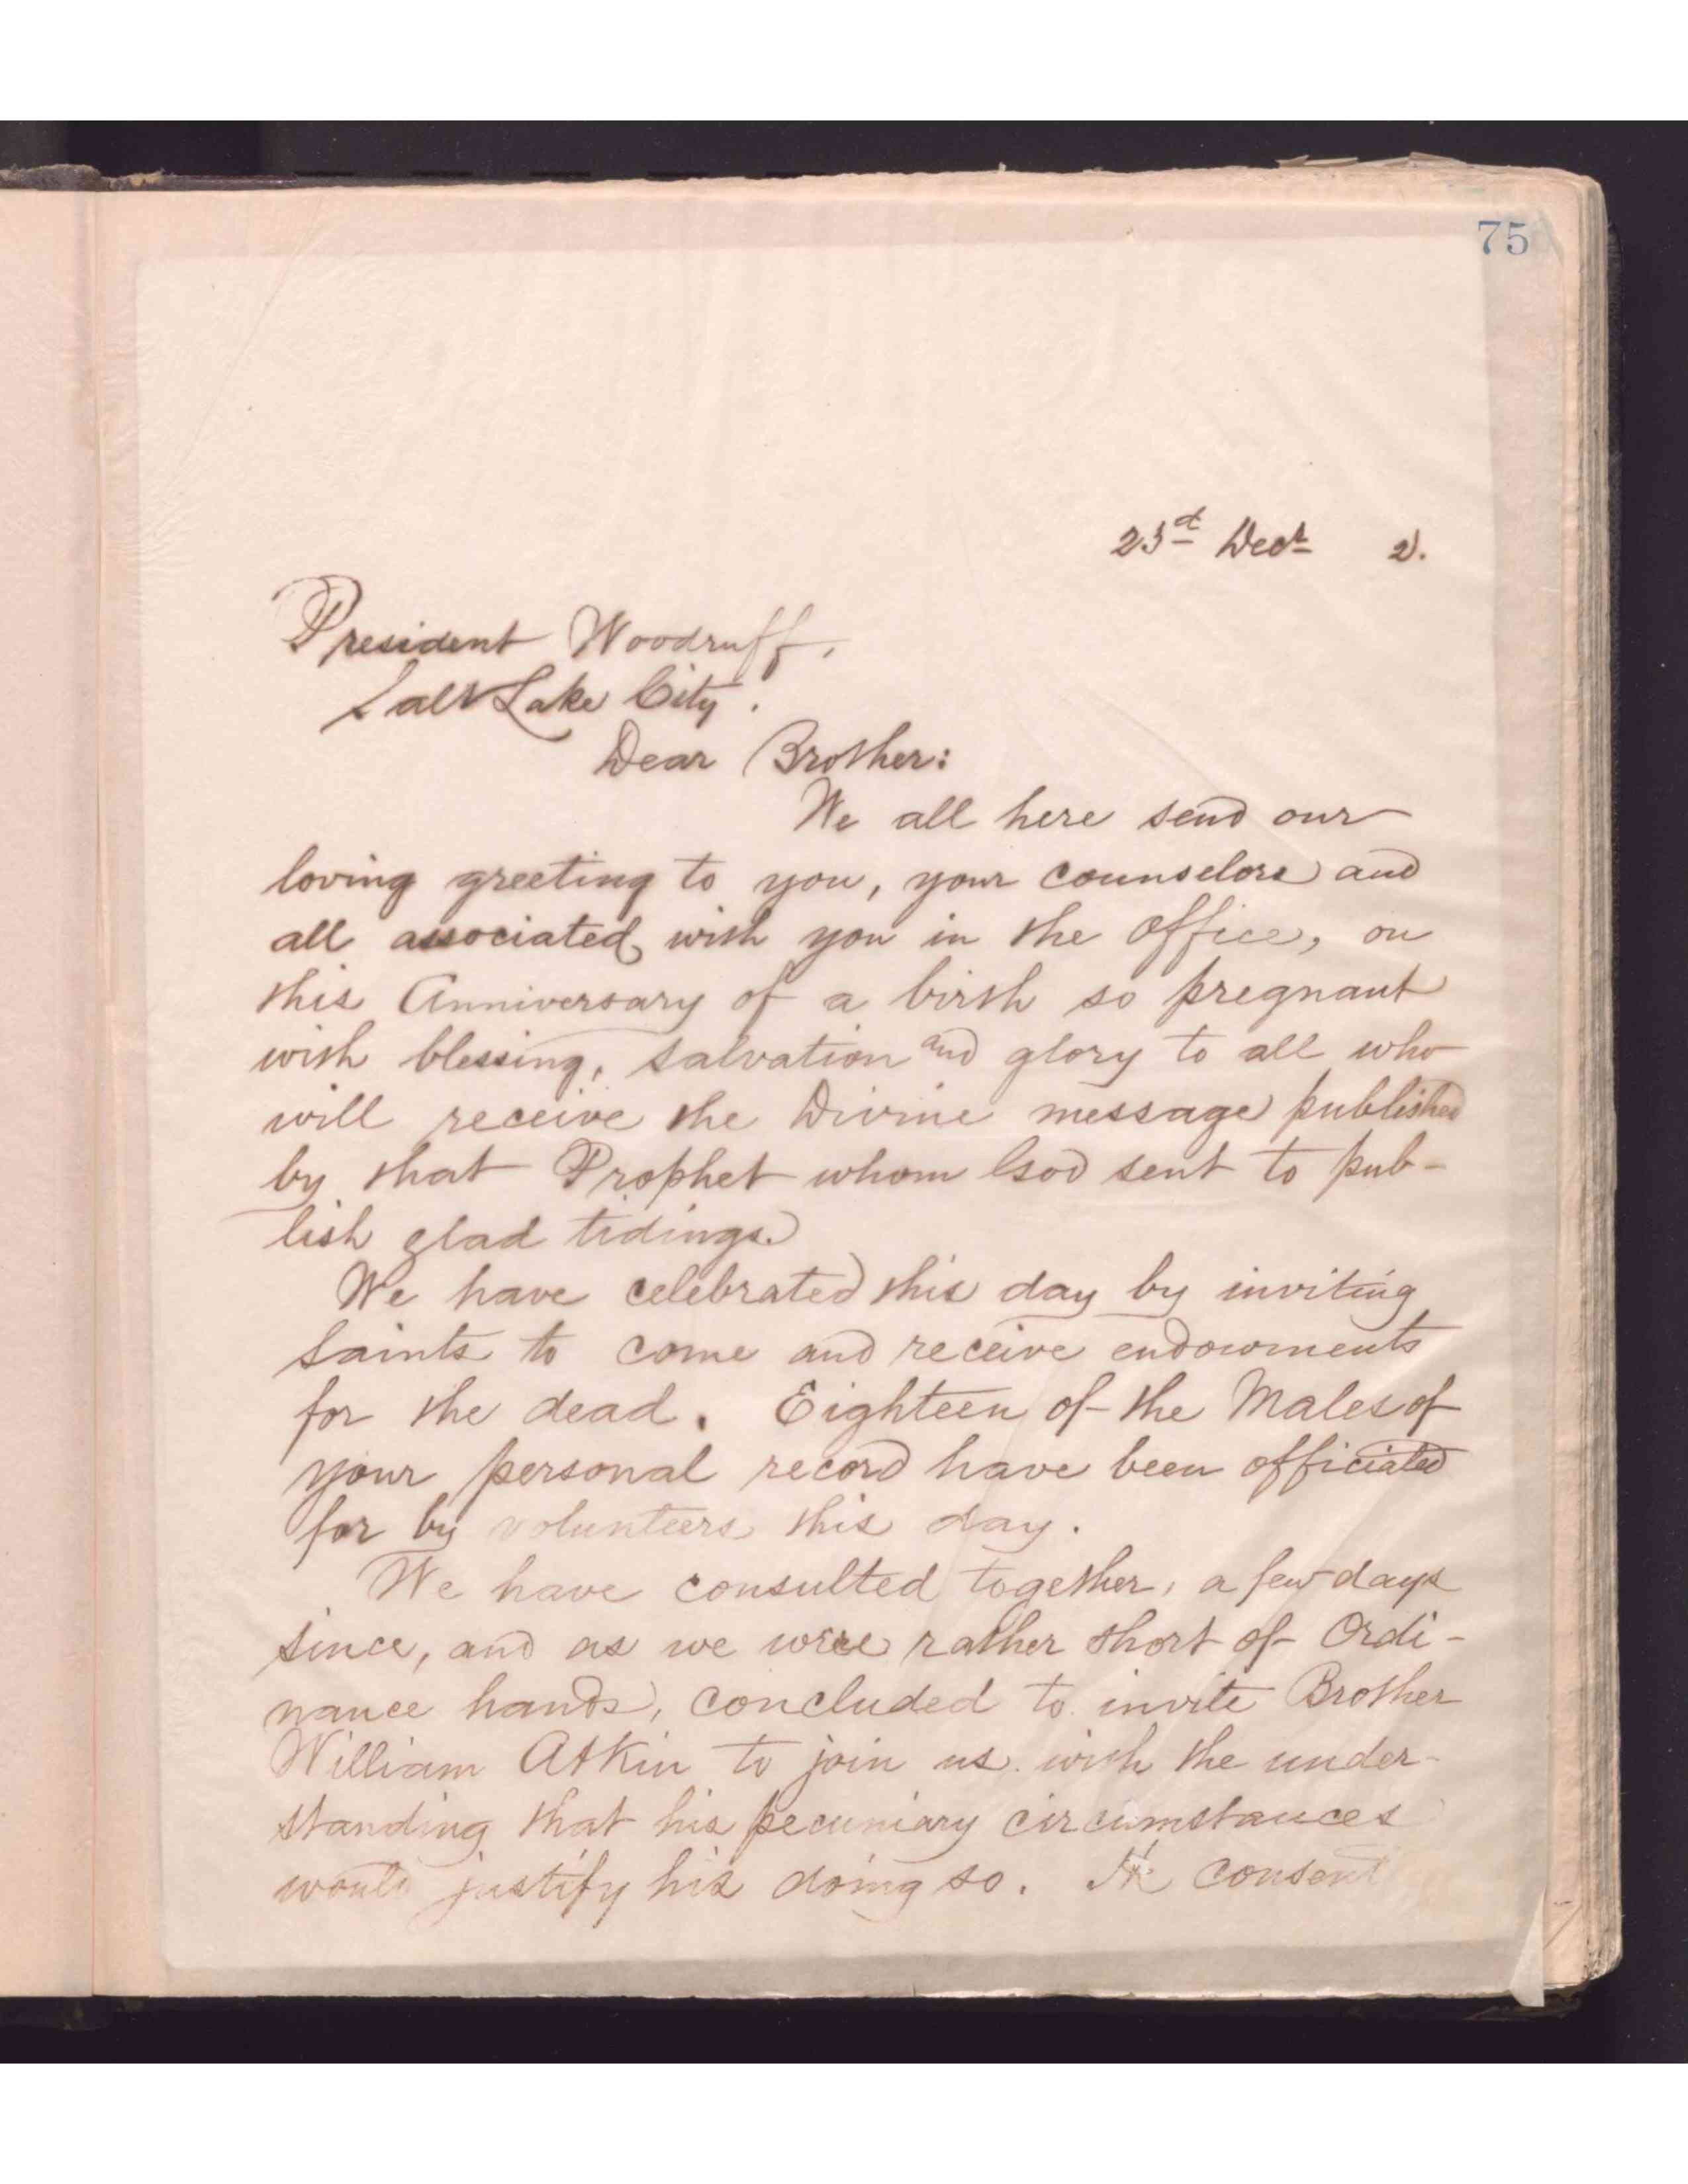 75
23d Decr 2.
President Woodruff,
Salt Lake City.
Dear Brother:
We all here send our
loving greeting to you, your counselors and
all associated with you in the office, on
this Anniversary of a birth so pregnant
with blessing, salvation and glory to all who
will receive the Divine message published
by that Prophet whom God sent to pub-
lish glad tidings.
We have celebrated this day by inviting
saints to come and receive endowments
for the dead. Eighteen of the Males of
your personal record have been officiated
for by volunteers this day.
We have consulted together, a few days
since, and as we were rather short of Ordi-
nance hands, concluded to invite Brother
William Atkin to join us with the under-
standing that his pecuniary circumstances
would justify his doing so. He consent